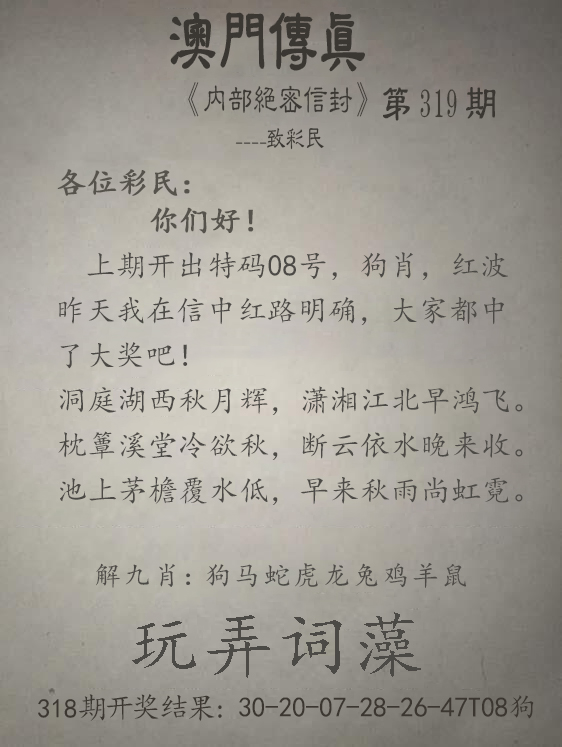 澳門傳眞
《内部絕密信封》第319期
----致彩民
各位彩民：
你们好！
上期开出特码08号，狗肖，红波
昨天我在信中红路明确，大家都中
了大奖吧！
洞庭湖西秋月辉，潇湘江北早鸿飞。
枕簟溪堂冷欲秋，断云依水晚来收。
池上茅檐覆水低，早来秋雨尚虹霓。
解九肖：狗马蛇虎龙兔鸡羊鼠
玩弄词藻
318期开奖结果：30-20-07-28-26-47T08狗